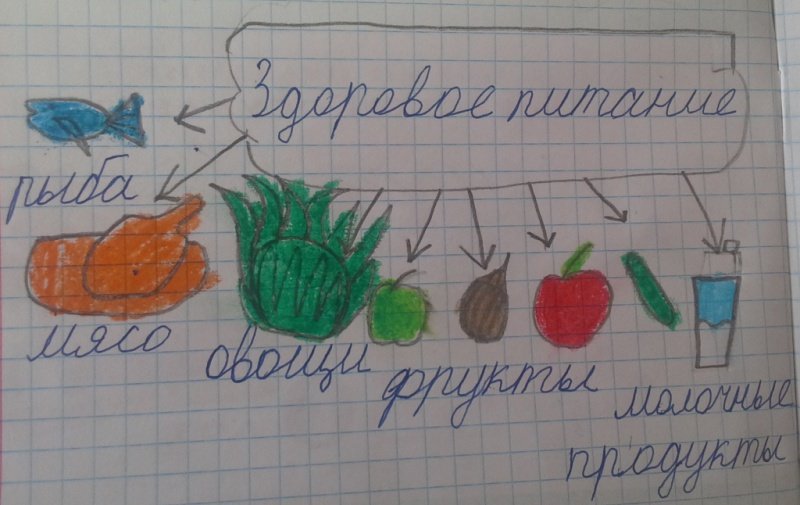 Здоровое питание
рыба
мясо
овощи
фрукты
молочные
продукты